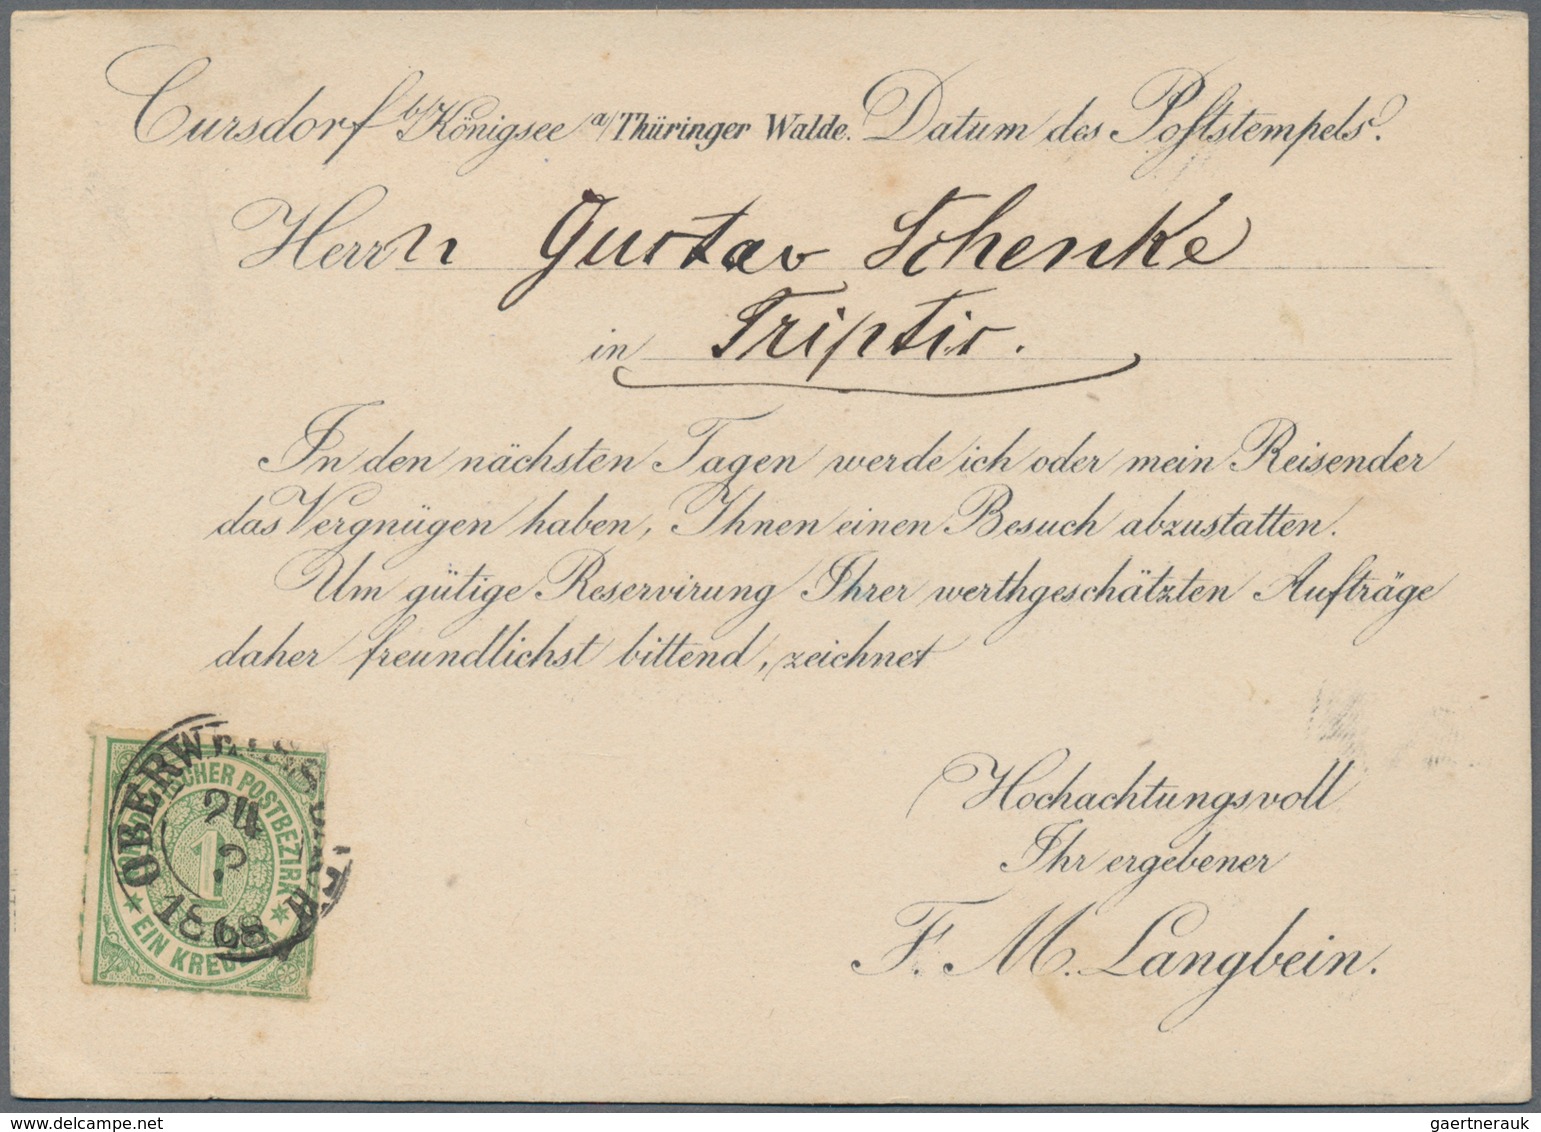 Cursdorf b/Königsee a/Thüringer Walde. Datum des Poststempels.
Herrn Gustav Schenke
in Triptis.
In den nächsten Tagen werde ich oder mein Reisender
das Vergnügen haben, Ihnen einen Besuch abzustatten.
Um gütige Reservirung Ihrer werthgeschätzten Aufträge
daher freundlichst bittend, zeichnet
Hochachtungsvoll
Ihr ergebener
F. M. Langbein.
POSTBEZIRK
1
EIN
OBERW
24
1868
gaertnerauk